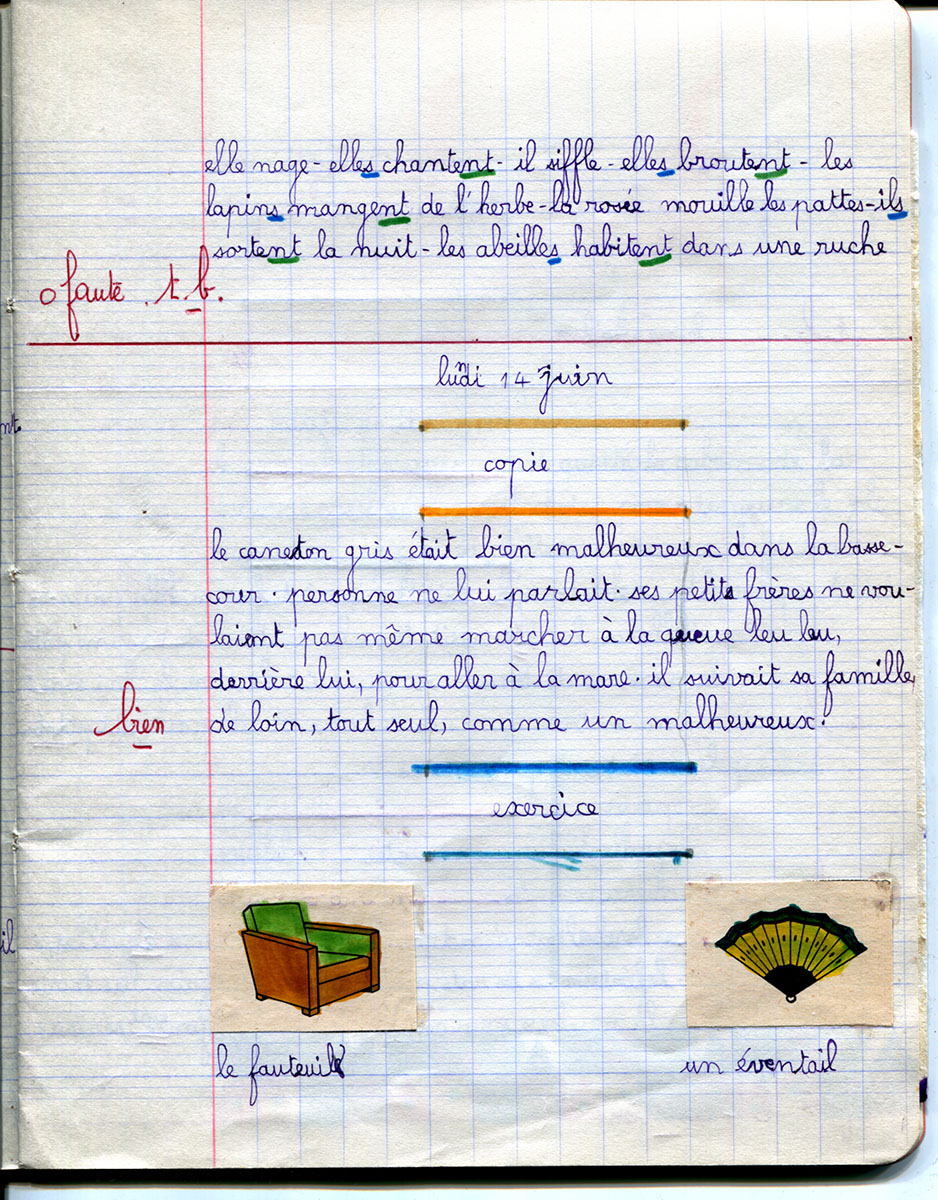 elle nage - elles chantent - il siffle - elles broutent - les
lapins mangent de l'herbe - la rosée mouille les pattes - ils
sortent la nuit - les abeilles habitent dans une ruche
0 faute . t. b.
lundi 14 juin
copie
le caneton gris était bien malheureux dans la basse-
cour . personne ne lui parlait . ses petits frères ne vou-
laient pas même marcher à la queue leu leu,
derrière lui, pour aller à la mare . il suivait sa famille,
bien de loin, tout seul, comme un malheureux .
exercice
le fauteuil un éventail
nt.
il